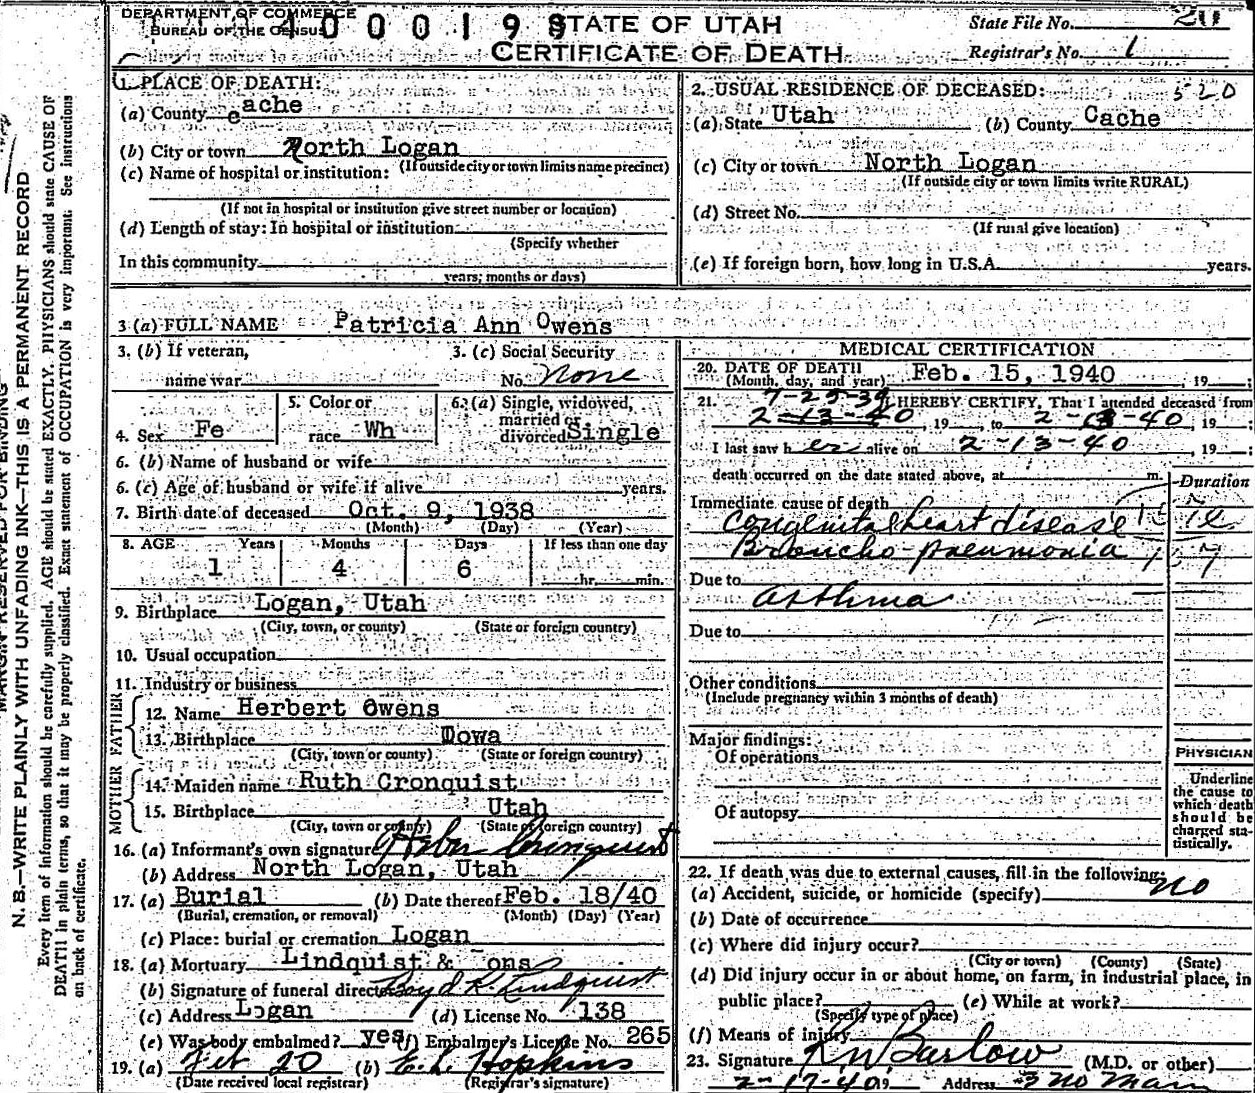 DEPARTMENT OF COMMERCE
BUREAU OF THE CENSUS
4000198
STATE OF UTAH
CERTIFICATE OF DEATH
State File No. 20
Registrar's No. 1
N. B.—WRITE PLAINLY WITH UNFADING INK—THIS IS A PERMANENT RECORD
Every item of information should be carefully supplied. AGE should be stated EXACTLY. PHYSICIANS should state CAUSE OF
DEATH in plain terms, so that it may be properly classified. Exact statement of OCCUPATION is very important. See instructions
on back of certificate.
1. PLACE OF DEATH:
(a) County Cache
(b) City or town North Logan
(If outside city or town limits name precinct)
(c) Name of hospital or institution:
(If not in hospital or institution give street number or location)
(d) Length of stay: In hospital or institution
(Specify whether
In this community
years, months or days)
2. USUAL RESIDENCE OF DECEASED: 520
(a) State Utah (b) County Cache
(c) City or town North Logan
(If outside city or town limits write RURAL)
(d) Street No.
(If rural give location)
(e) If foreign born, how long in U.S.A. years.
3 (a) FULL NAME Patricia Ann Owens
3. (b) If veteran, 3. (c) Social Security
name war No. None
4. Sex Fe 5. Color or race Wh 6. (a) Single, widowed, married or divorced Single
6. (b) Name of husband or wife
6. (c) Age of husband or wife if alive years.
7. Birth date of deceased Oct. 9, 1938
(Month) (Day) (Year)
8. AGE Years Months Days If less than one day
1 4 6 hr. min.
9. Birthplace Logan, Utah
(City, town, or county) (State or foreign country)
10. Usual occupation
11. Industry or business
FATHER
12. Name Herbert Owens
13. Birthplace Iowa
(City, town or county) (State or foreign country)
MOTHER
14. Maiden name Ruth Cronquist
15. Birthplace Utah
(City, town or county) (State or foreign country)
16. (a) Informant's own signature Cronquist
(b) Address North Logan, Utah
17. (a) Burial (b) Date thereof Feb. 18/40
(Burial, cremation, or removal) (Month) (Day) (Year)
(c) Place: burial or cremation Logan
18. (a) Mortuary Lindquist & ons
(b) Signature of funeral director Boyd K. Lindquist
(c) Address Logan (d) License No. 138
(e) Was body embalmed? yes (f) Embalmer's License No. 265
19. (a) Feb 20 (b) E. L. Hopkins
(Date received local registrar) (Registrar's signature)
MEDICAL CERTIFICATION
20. DATE OF DEATH
(Month, day, and year) Feb. 15, 1940, 19
21. I HEREBY CERTIFY, That I attended deceased from
7-25-39
2-13-40, 19 , to 2-13-40, 19 ;
I last saw her alive on 2-13-40, 19 ;
death occurred on the date stated above, at m.
Duration
Immediate cause of death
Congenital heart disease
Broncho-pneumonia
Due to
asthma
Due to
Other conditions
(Include pregnancy within 3 months of death)
Major findings:
Of operations
Of autopsy
PHYSICIAN
Underline
the cause to
which death
should be
charged sta-
tistically.
22. If death was due to external causes, fill in the following:
(a) Accident, suicide, or homicide (specify) no
(b) Date of occurrence
(c) Where did injury occur?
(City or town) (County) (State)
(d) Did injury occur in or about home, on farm, in industrial place, in
public place? (e) While at work?
(Specify type of place)
(f) Means of injury
23. Signature Barlow (M.D. or other)
2-17-40 19 Address #3 No Main